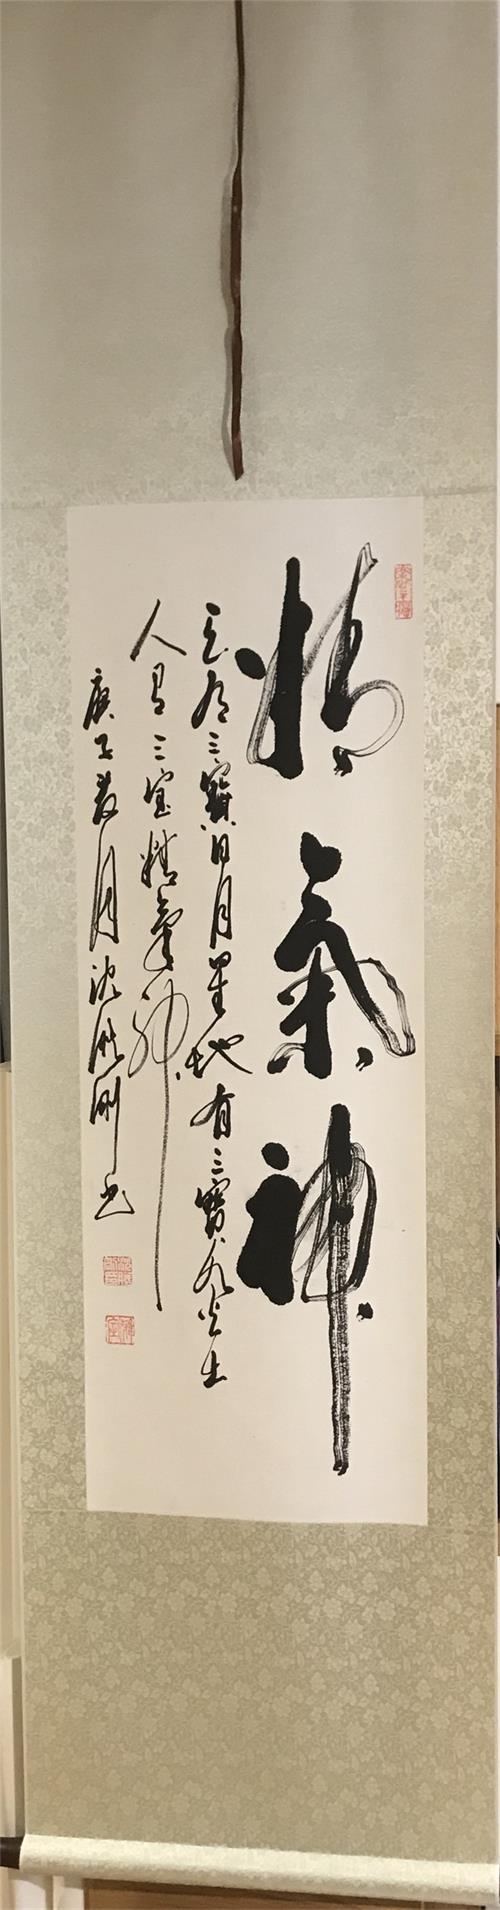 精氣神
天有三寶日月星地有三寶水火土
人有三宝精氣神
庚子夏月沈刚书